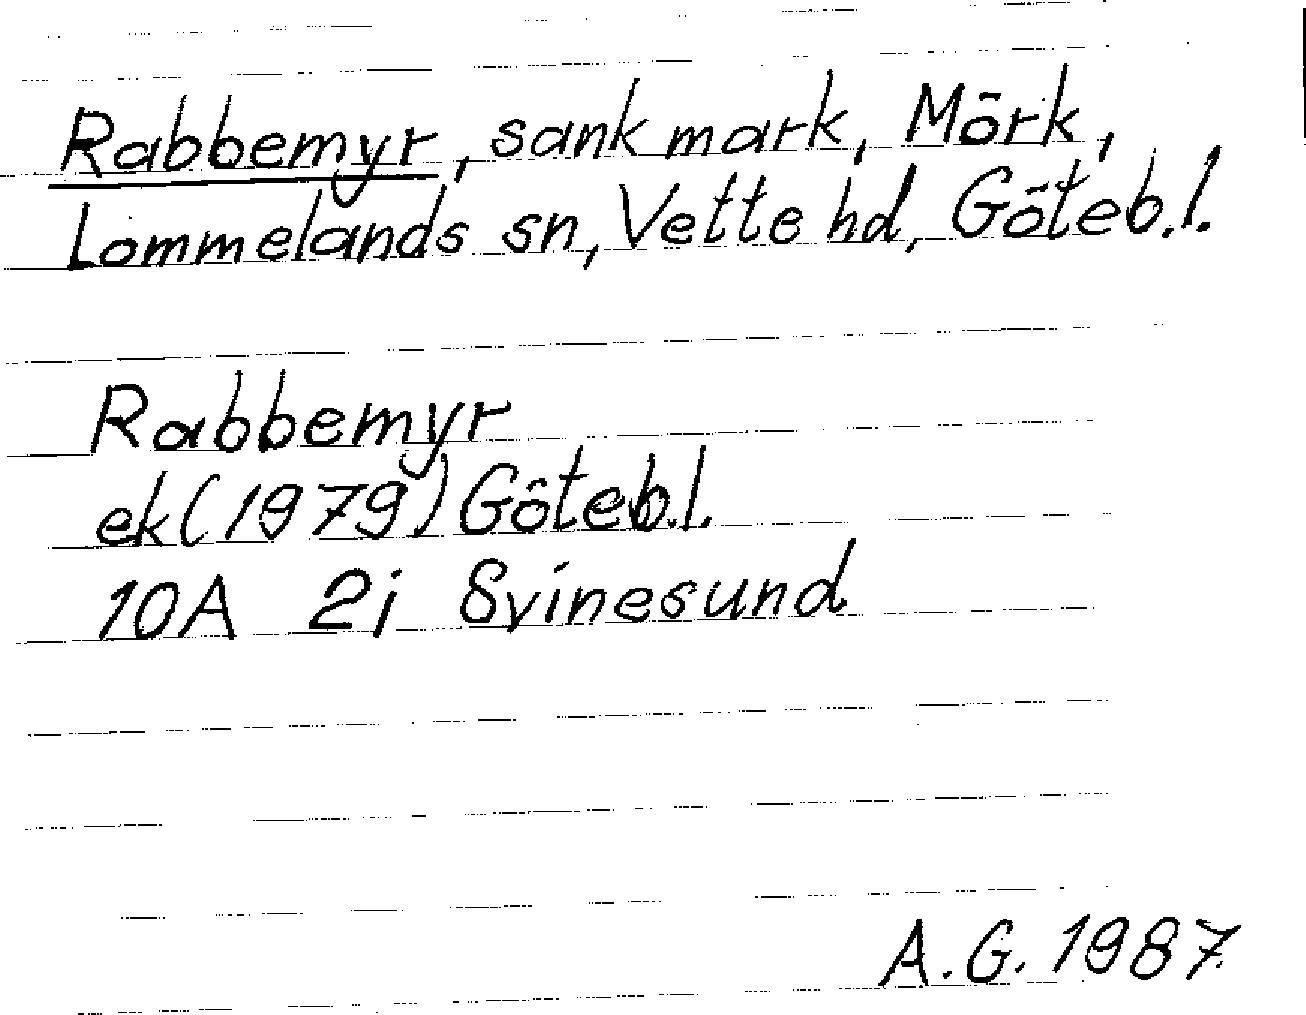 Rabbemyr, sank mark, Mörk,
Lommelands sn, Vette hd, Göteb.l.
Rabbemyr
ek (1979) Göteb.l.
10A 2j Svinesund
A.G. 1987